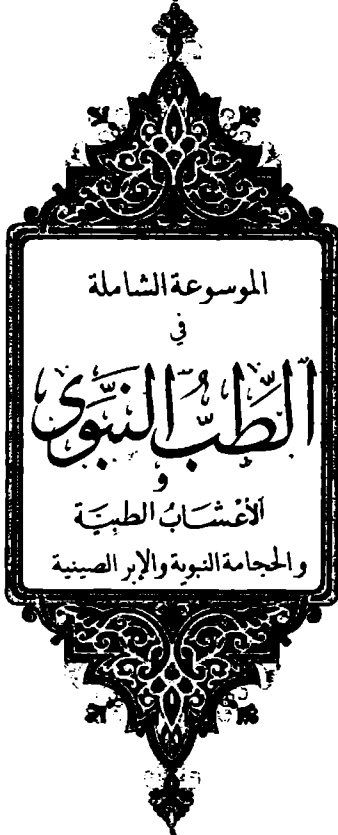 الموسوعة الشاملة
في
الطِّبُّ النَّبَوِي
و
الأعْشَابُ الطبِيَّة
والحجامة النبوية والإبر الصينية